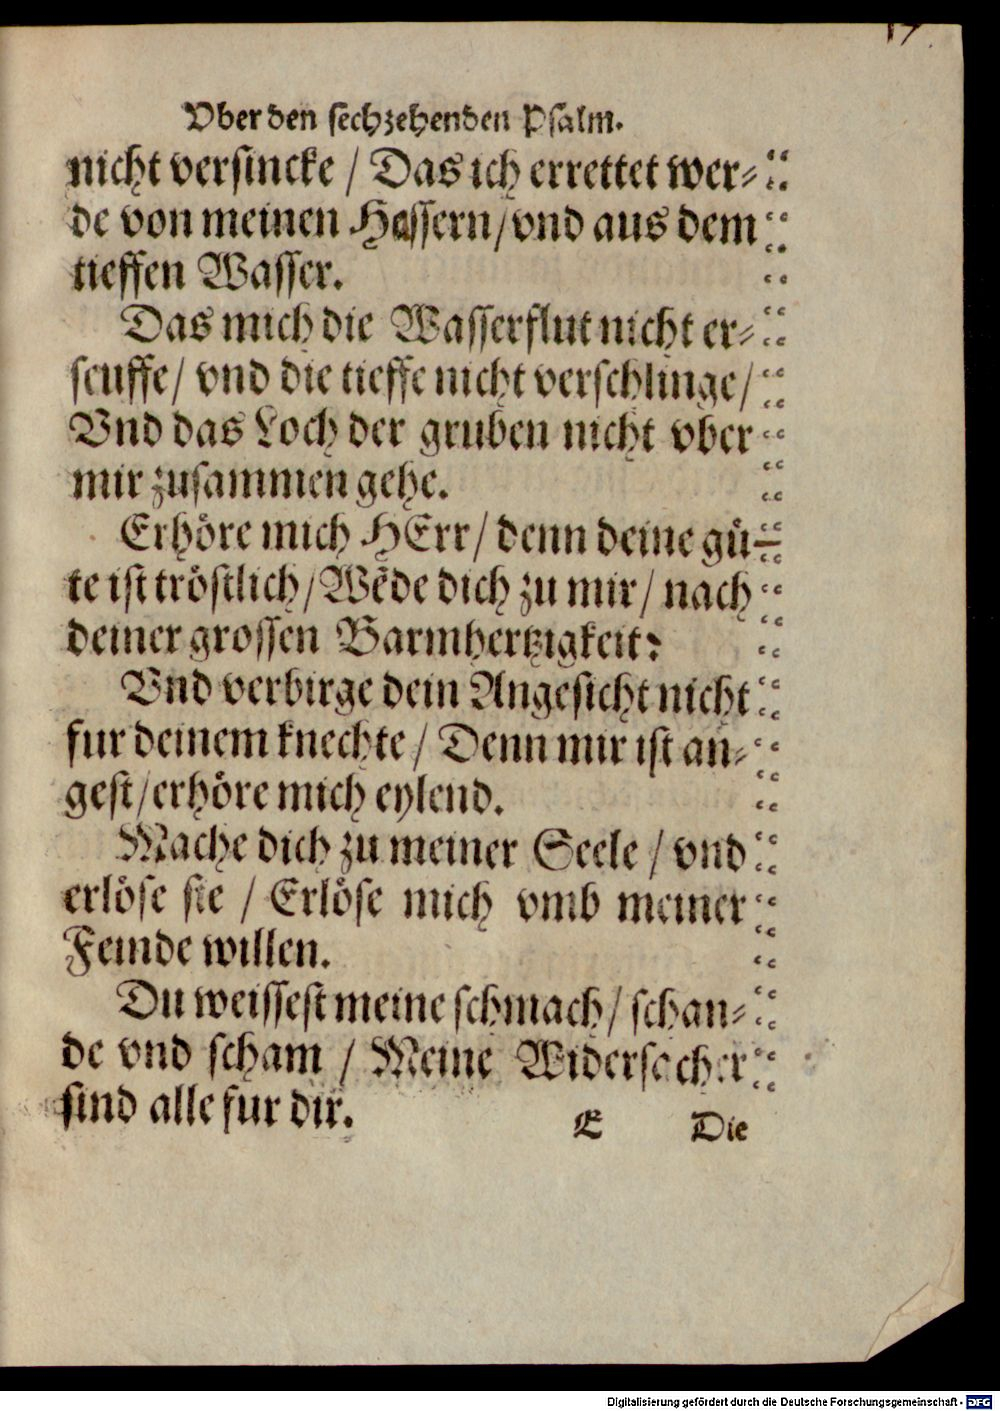 17.
Vber den sechzehenden Psalm.
nicht versincke / Das ich errettet wer⸗
de von meinen Hassern/vnd aus dem
tieffen Wasser.
Das mich die Wasserflut nicht er⸗
seuffe/ vnd die tieffe nicht verschlinge/
Vnd das Loch der gruben nicht vber
mir zusammen gehe.
Erhöre mich HErr/ denn deine gü⸗
te ist tröstlich/Wẽde dich zu mir/ nach
deiner grossen Barmhertzigkeit:
Vnd verbirge dein Angesicht nicht
fur deinem knechte/ Denn mir ist an⸗
gest/erhöre mich eylend.
Mache dich zu meiner Seele / vnd
erlöse sie / Erlöse mich vmb meiner
Feinde willen.
Du weissest meine schmach/ schan⸗
de vnd scham / Meine Widersacher
sind alle fur dir.
E Die
Digitalisierung gefördert durch die Deutsche Forschungsgemeinschaft - DFG